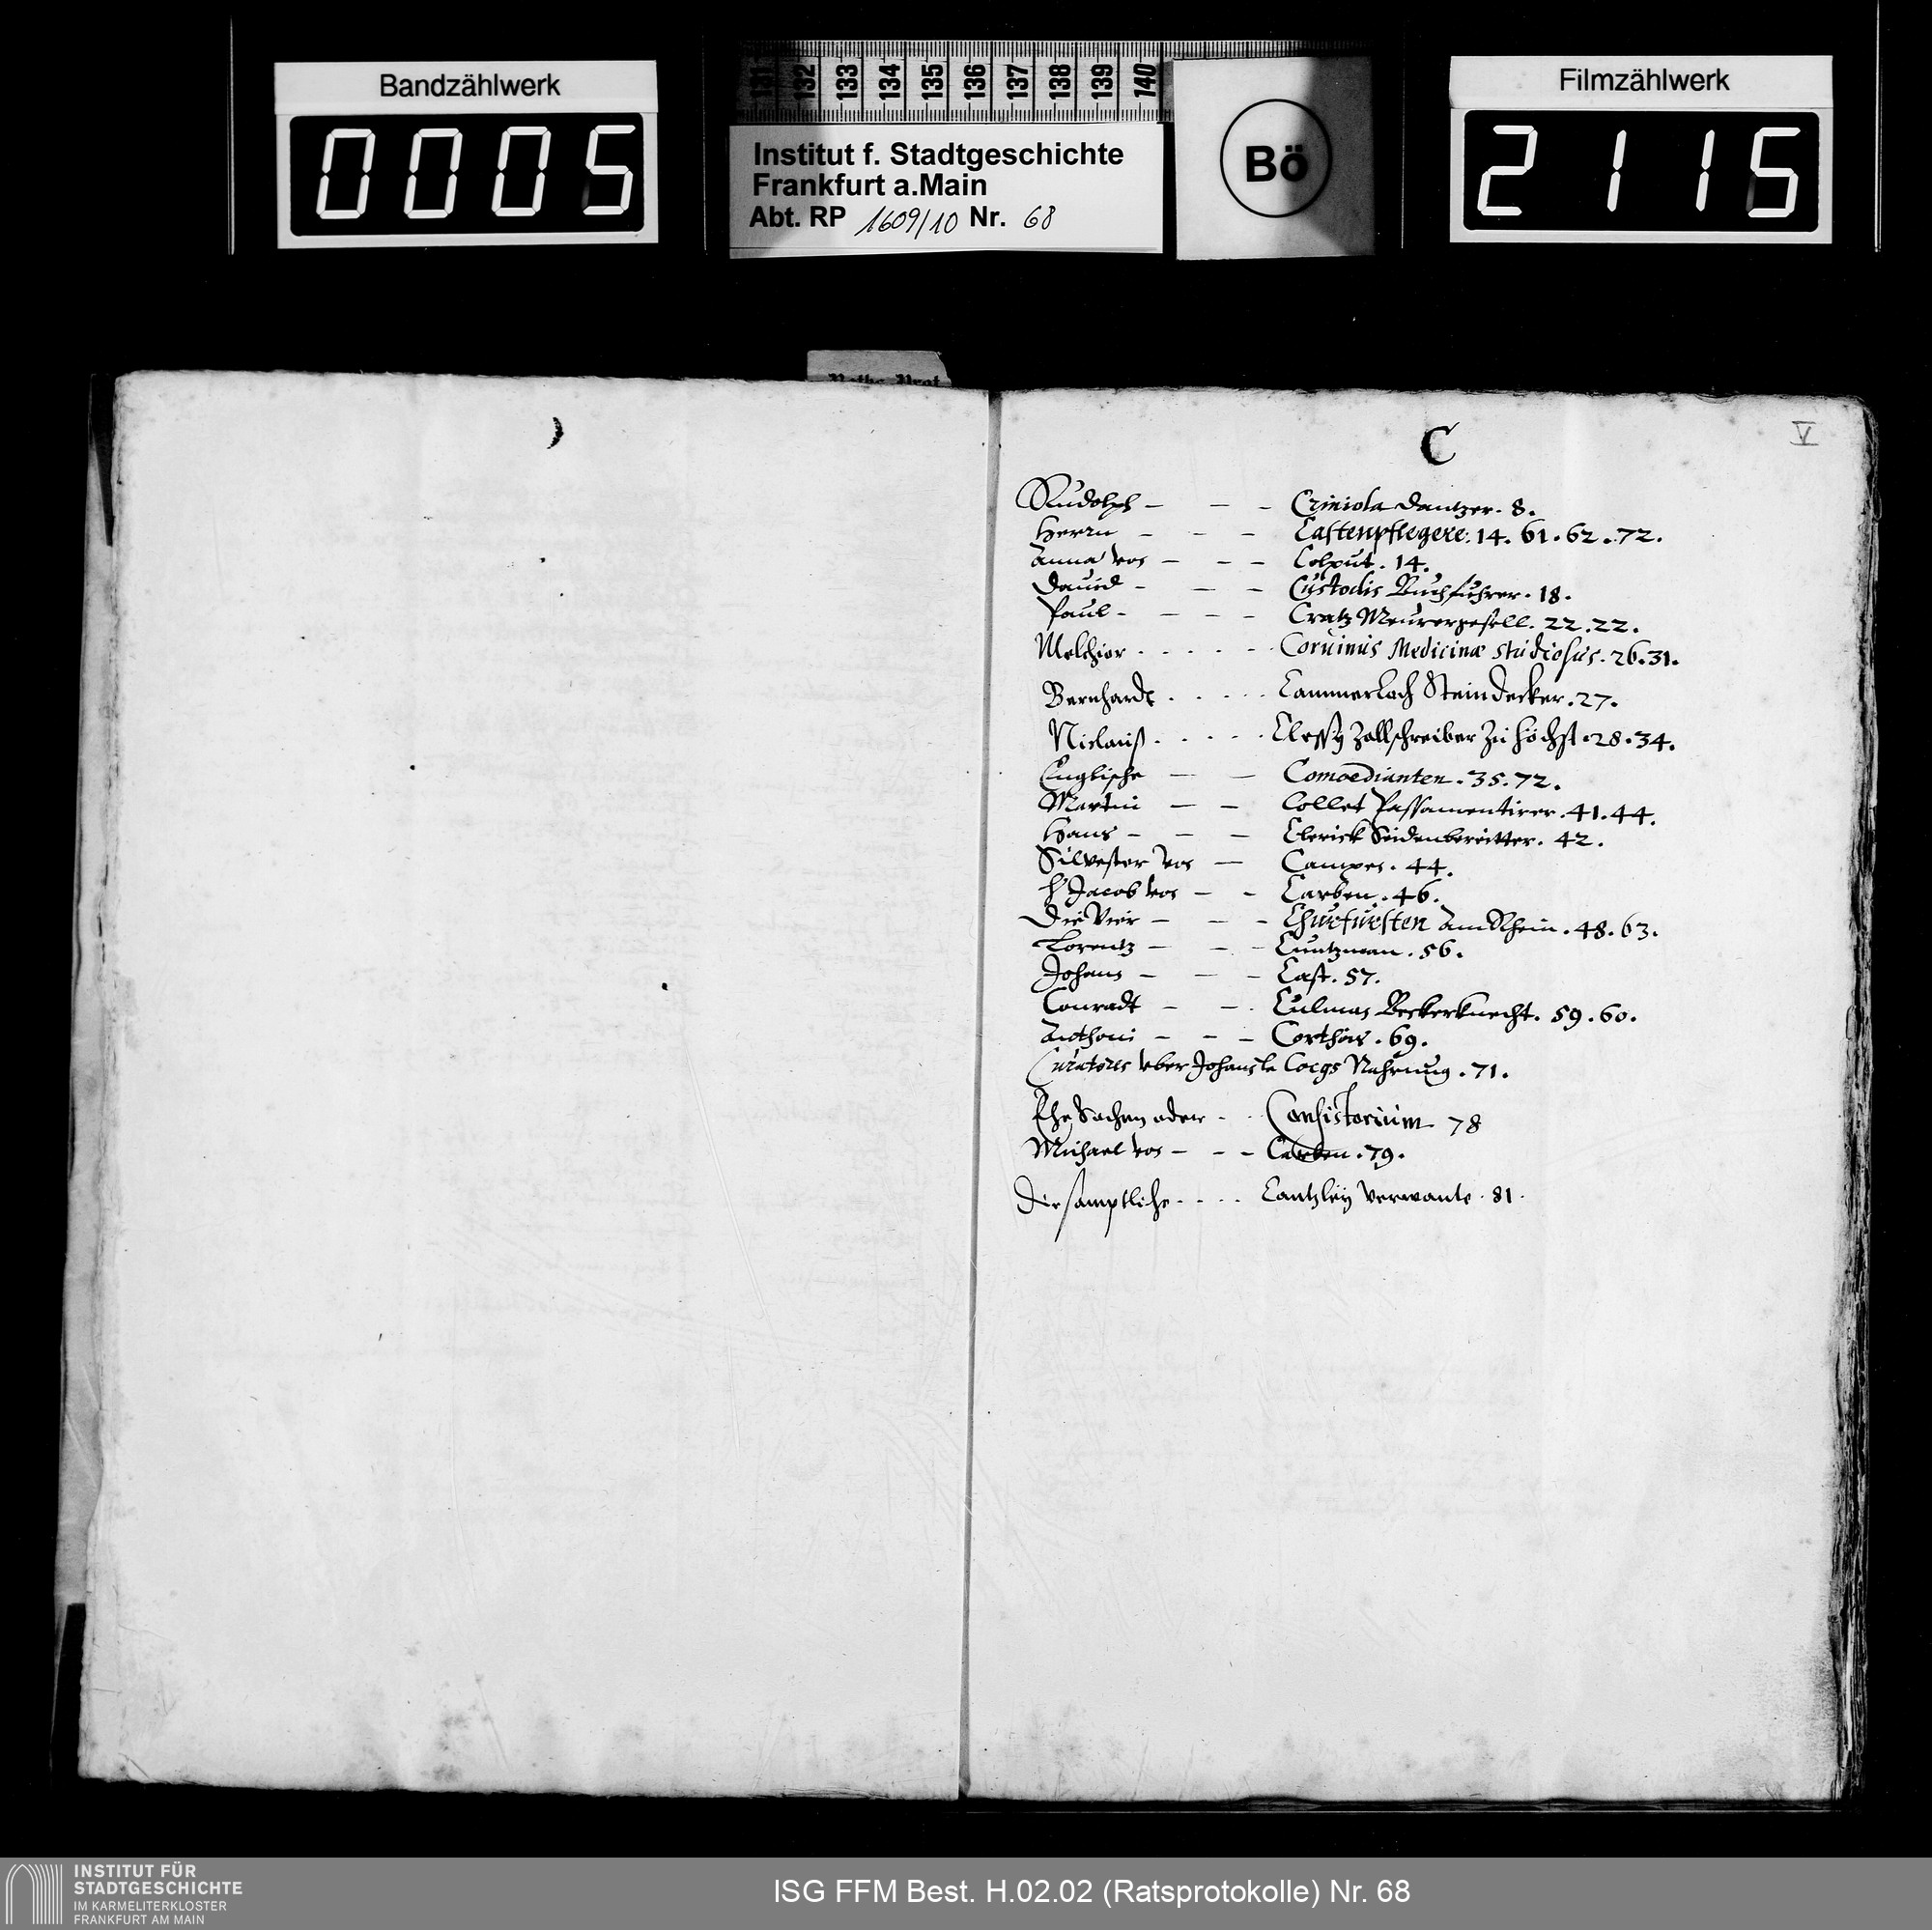 Bandzählwerk
0005
131 132 133 134 135 136 137 138 139 140
Institut f. Stadtgeschichte
Frankfurt a.Main
Abt. RP 1609/10 Nr. 68
Bö
Filmzählwerk
2115
Raths-Prot
C
V
Rudolph - - - Criniola Dantzer. 8.
Herrn - - - Castenpflegere. 14. 61. 62. 72.
Anna von - - - Colput. 14.
Dauid - - - Custodis Buchfuhrer. 18.
Paul - - - - Cratz Meurergesell. 22. 22.
Melchior . . . . . Coruinus Medicinæ studiosus. 26. 31.
Bernhardt . . . . . Cammerloch Steindecker. 27.
Niclauß . . . . . Zollschreiber zu Höchst. 28. 34.
Englische - - Comoedianten. 35. 72.
Martin - - Collet Passamentirer. 41. 44.
Hans - - - Clerick Seidenbereitter. 42.
Silvester von - Campen. 44.
H Jacob von - - Carben. 46.
Die Vier - - - Churfursten Am Rhein. 48. 63.
Lorentz - - - Cuntzman. 56.
Johann - - - Cast. 57.
Conradt - - - Culman Beckerknecht. 59. 60.
Anthoni - - - Corthois. 69.
Curatores vber Johan le Cocqs Nahrung. 71.
Ehe Sachen oder . . Consistorium 78
Michael von - - - Carben. 79.
Die samptliche . . . . Cantzley Verwante. 81.
INSTITUT FÜR
STADTGESCHICHTE
IM KARMELITERKLOSTER
FRANKFURT AM MAIN
ISG FFM Best. H.02.02 (Ratsprotokolle) Nr. 68